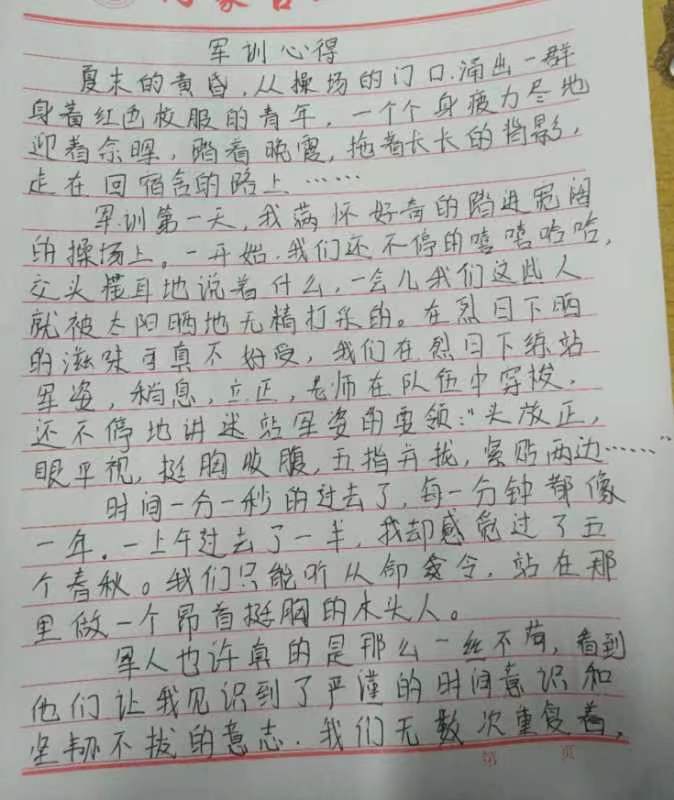 军训心得
夏末的黄昏，从操场的门口涌出一群
身着红色校服的青年，一个个身疲力尽地
迎着余晖，踏着晚霞，拖着长长的背影，
走在回宿舍的路上……
军训第一天，我满怀好奇的踏进宽阔
的操场上。一开始，我们还不停的嘻嘻哈哈，
交头接耳地说着什么，一会儿我们这些人
就被太阳晒地无精打采的。在烈日下晒
的滋味可真不好受，我们在烈日下练站
军姿，稍息，立正，老师在队伍中穿梭，
还不停地讲述站军姿的要领："头放正，
眼平视，挺胸收腹，五指并拢，紧贴两边……"
时间一分一秒的过去了，每一分钟都像
一年。一上午过去了一半，我却感觉过了五
个春秋。我们只能听从命令，站在那
里做一个昂首挺胸的木头人。
军人也许真的是那么一丝不苟，看到
他们让我见识到了严谨的时间意识和
坚韧不拔的意志．我们无数次重复着，
第 页